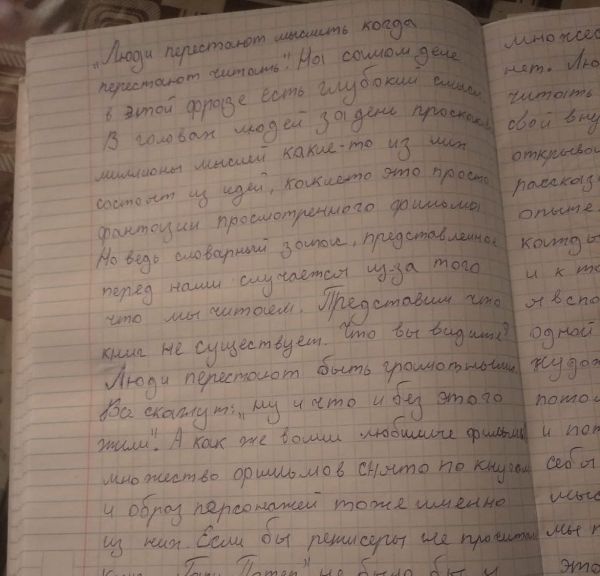 „Люди перестают мыслить когда
перестают читать". На самом деле
в этой фразе есть глубокий смысл
В головах людей за день проскакив
миллионы мыслей какие-то из них
состоят из идей, какие-то это просто
фантазии просмотренного фильма
Но ведь словарный запас, представленное
перед нами случается из-за того
что мы читаем. Представим что
книг не существует. Что вы видите?
Люди перестают быть грамотными
Вы скажут: „ну и что и без этого
жили". А как же ваши любимые фильмы
множество фильмов снято по книгам
и образ персонажей тоже именно
из них. Если бы режисеры не прочитали
"Гари Потер" не было бы и
множес
нет. Лю
читать
свой вну
открывой
рассказ
опыте.
кажды
и к то
я вспо
одной
худож
пото
и пот
себы
мыс
мы п
это